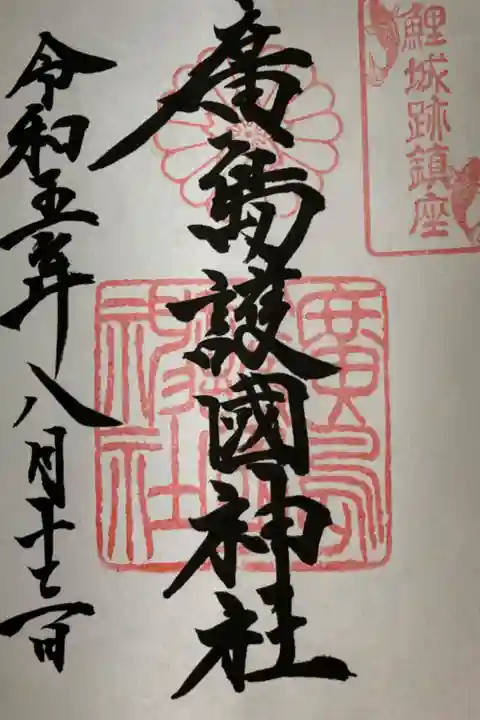 鯉城跡鎮座
廣島護國神社
廣島
護國
神社
令和五年八月十七日